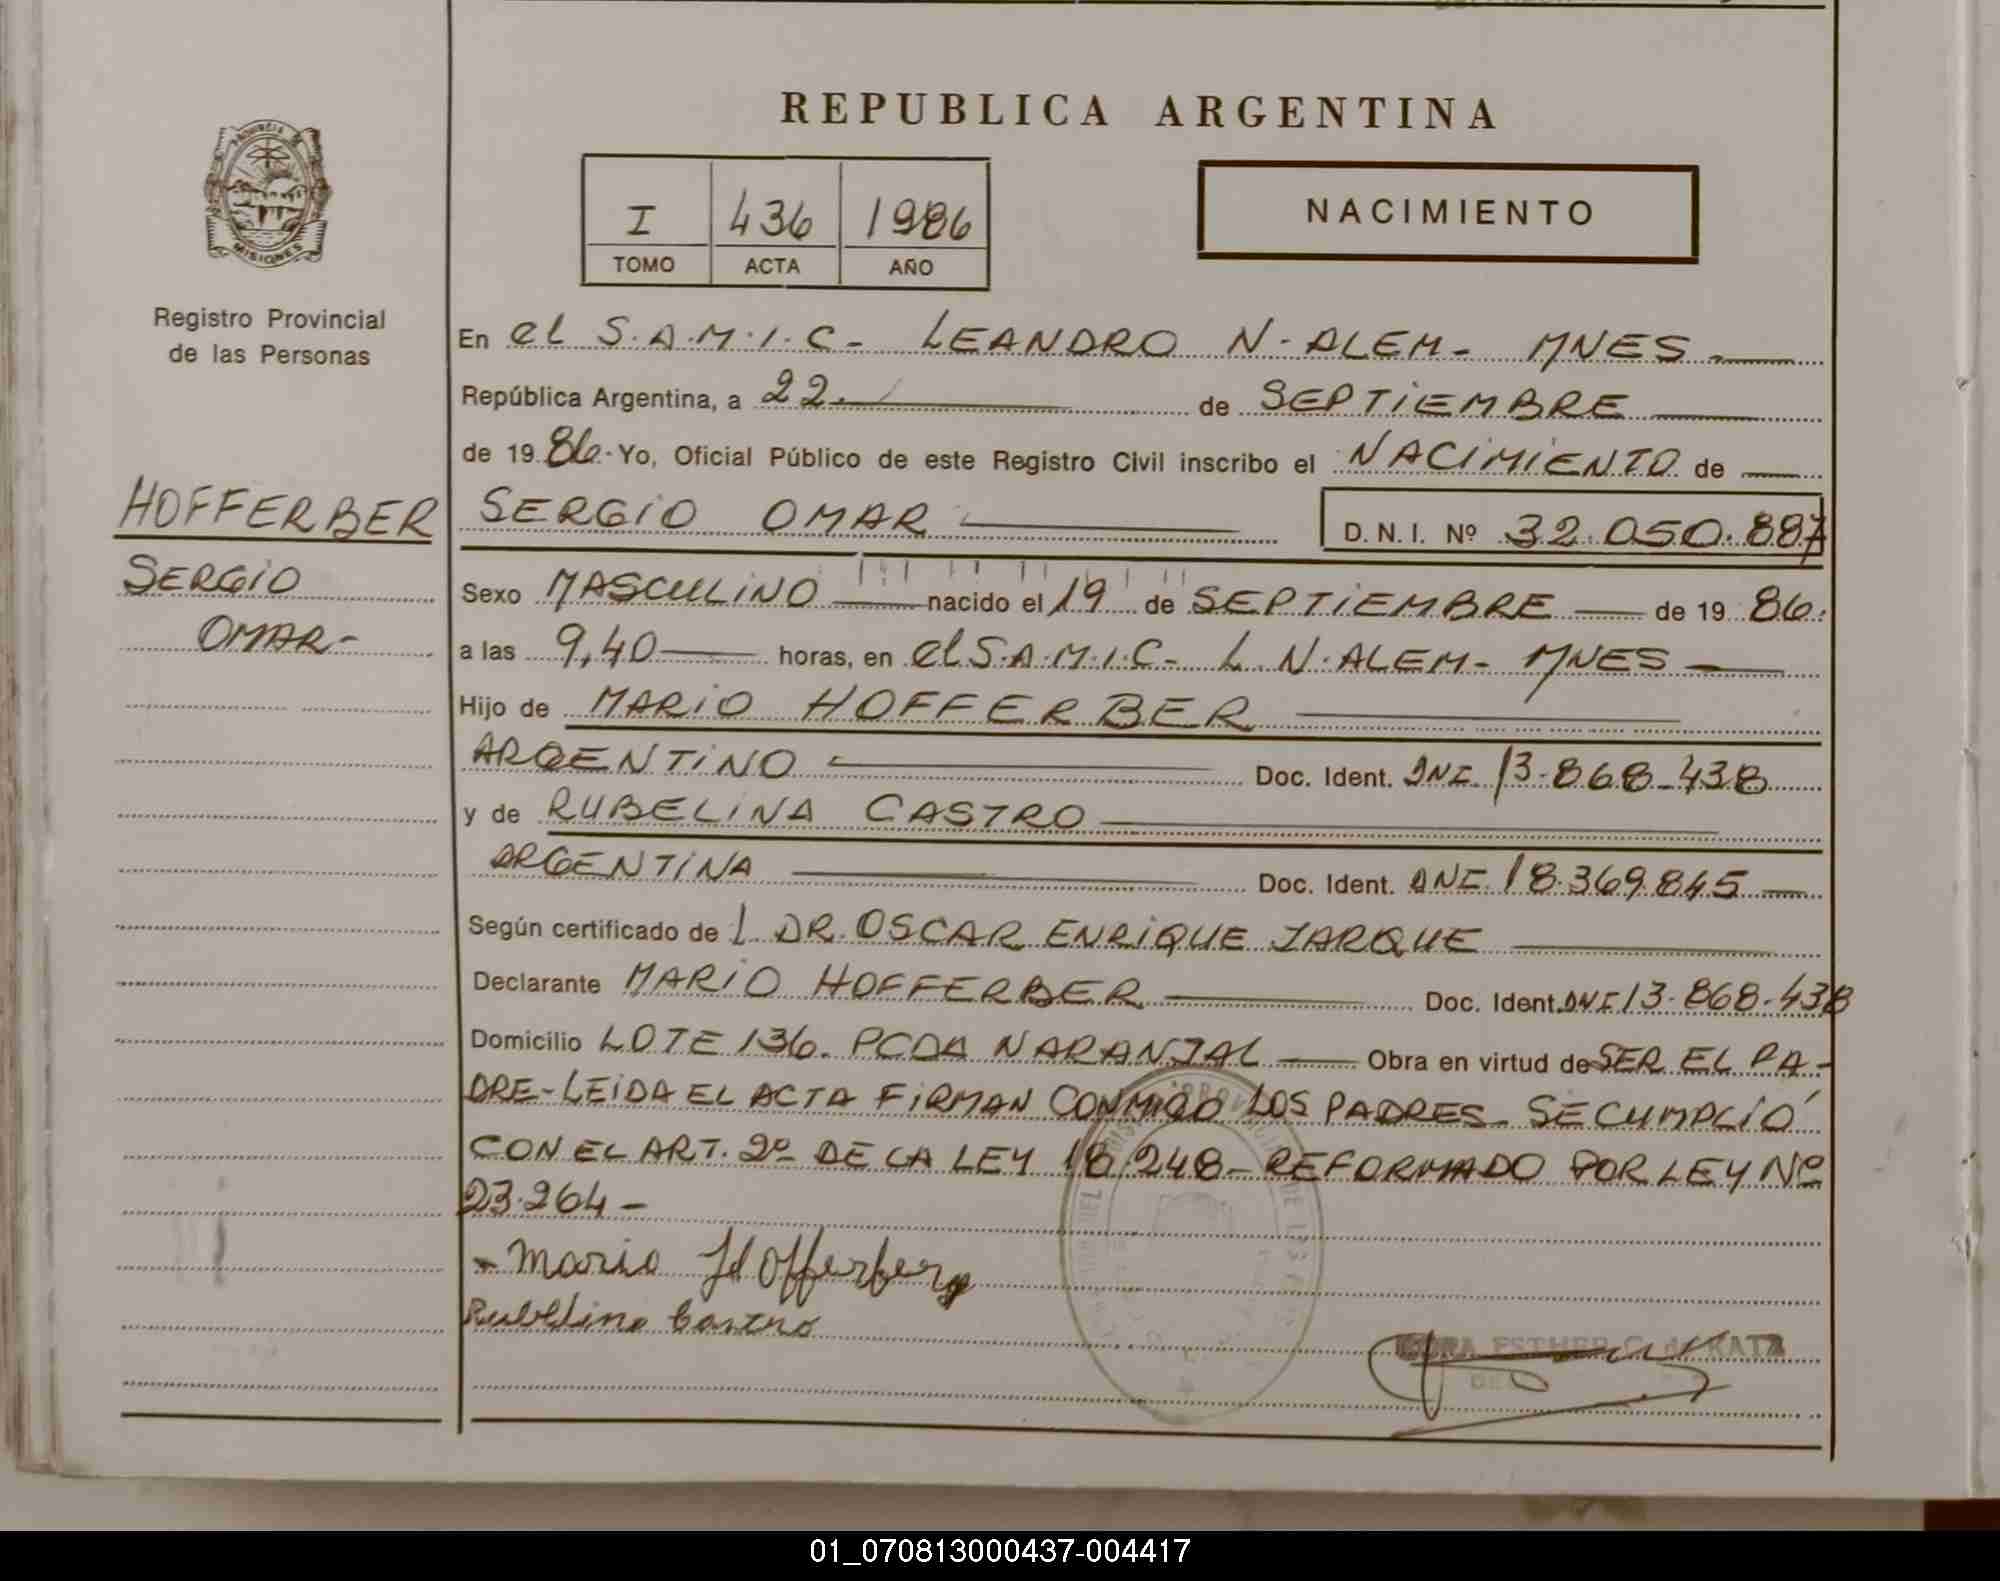 REPUBLICA ARGENTINA
PROVINCIA DE
MISIONES
Registro Provincial
de las Personas
I 436 1986
TOMO ACTA AÑO
NACIMIENTO
En el S.A.M.I.C- LEANDRO N-ALEM- MNES-
República Argentina, a 22. de SEPTIEMBRE
de 19 86.- Yo, Oficial Público de este Registro Civil inscribo el NACIMIENTO de
HOFFERBER
SERGIO OMAR D. N. I. Nº 32.050.887
SERGIO
OMAR-
Sexo MASCULINO nacido el 19 de SEPTIEMBRE de 19 86.
a las 9,40 horas, en el S.A.M.I.C- L. N.ALEM- MNES-
Hijo de MARIO HOFFERBER
ARGENTINO Doc. Ident. DNI. 13-868-438
y de RUBELINA CASTRO
ARGENTINA Doc. Ident. DNI. 18.369.845
Según certificado de L DR. OSCAR ENRIQUE JARQUE
Declarante MARIO HOFFERBER Doc. Ident. DNI 13-868-438
Domicilio LOTE 136. PCDA NARANJAL Obra en virtud de SER EL PA-
DRE-LEIDA EL ACTA FIRMAN CONMIGO LOS PADRES- SE CUMPLIÓ
CON EL ART. 2º DE LA LEY 18.248- REFORMADO POR LEY Nº
23.264-
- Mario Hofferber
Rubelina Castro
ESTHER
01_070813000437-004417